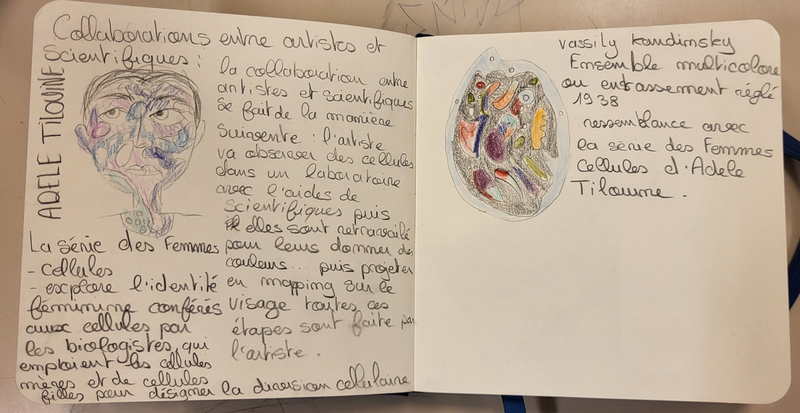 Collaborations entre artistes et
Scientifiques :
ADELE TILOUINE
la collaboration entre
artistes et scientifiques
se fait de la manière
suivante : l'artiste
va observer des cellules
dans un laboratoire
avec l'aides de
scientifiques puis
elles sont retravaillé
pour leurs donner des
couleurs... puis projeter
en mapping sur le
visage toutes ces
étapes sont faite par
l'artiste.
La série des Femmes
- cellules
- explore l'identité
féminine conférés
aux cellules par
les biologistes qui
emploient les cellules
mères et de cellules
filles pour désigner la division cellulaire
Vassily Kandinsky
Ensemble multicolore
ou entassement réglé
1938
ressemblance avec
la série des Femmes
cellules d'Adele
Tilouine.